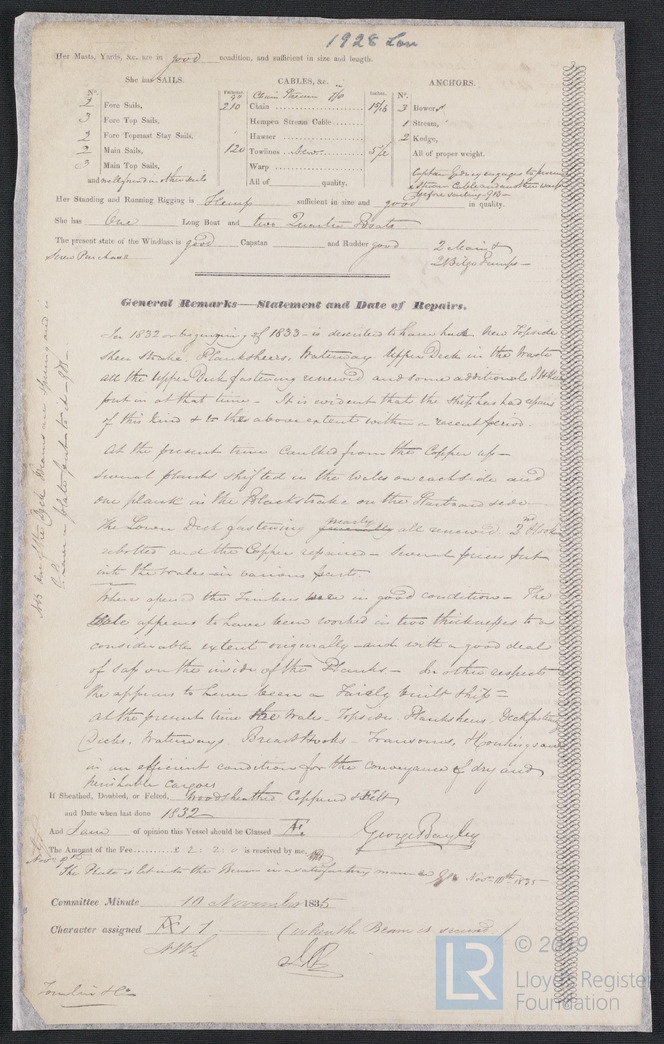 1928 Lon
Her Masts, Yards, &c. are in good condition, and sufficient in size and length.
She has SAILS.
CABLES, &c.
ANCHORS.
N°.
Fathoms.
Inches.
N°.
2 Fore Sails,
3 Fore Top Sails,
2 Fore Topmast Stay Sails,
2 Main Sails,
3 Main Top Sails,
and well found in other sails
90 Chain Stream 7/8
210 Chain
Hempen Stream Cable
Hawser
120 Towlines New 5 1/2
Warp
All of quality.
3 Bowers
1 Stream,
2 Kedge,
All of proper weight.
Captain engages to
a Stream Cable and another warp
before sailing GB
Her Standing and Running Rigging is Hemp sufficient in size and good in quality.
She has One Long Boat and two Quarter Boats
The present state of the Windlass is good Capstan and Rudder good 2 Main &
Screw Purchase
2 Bilge Pumps
General Remarks—Statement and Date of Repairs.
In 1832 or beginning of 1833 is described to have had New Topside
Sheer Strake, Planksheers, Waterway, Upper Deck in the Waste
all the Upper Deck fastening renewed and some additional
put in at that time - It is evident that the ship has had repairs
of this kind & to the above extent within a recent period.
At the present time Caulked from the Copper up
several planks shifted in the Wales on each side and
one plank in the Blackstrake on the Starboard side
The Lower Deck fastening nearly all renewed. 2 Hooks
rebolted and the Copper repaired - Several pieces put
into the Wales in various parts.
Where opened the Timbers were in good condition - The
appears to have been worked in two thicknesses to a
considerable extent originally and with a good deal
of sap on the inside of the Planks - In other respects
She appears to have been a Fairly built ship =
At the present time the Wales, Topside, Planksheers, Deck fastening
Decks, Waterways Breast Hooks - Transoms, Housings are
in an efficient condition for the conveyance of dry and
perishable cargoes
one of the Deck Beams are sprung and is
to have a plate put to it - GB
If Sheathed, Doubled, or Felted, Woodsheathed Coppered & Felt
and Date when last done 1832
And I am of opinion this Vessel should be Classed Æ1 George Bayley
The Amount of the Fee £ 2 : 2 : 0 is received by me,
Nov. 9th
The Plate is let into the Beam in a satisfactory manner GB Nov. 10th 1835
Committee Minute 10 November 1835
Character assigned Æ 1 (when the Beam is secured)
Tomlin & Co
© 2019
LR
Lloyd's Register
Foundation